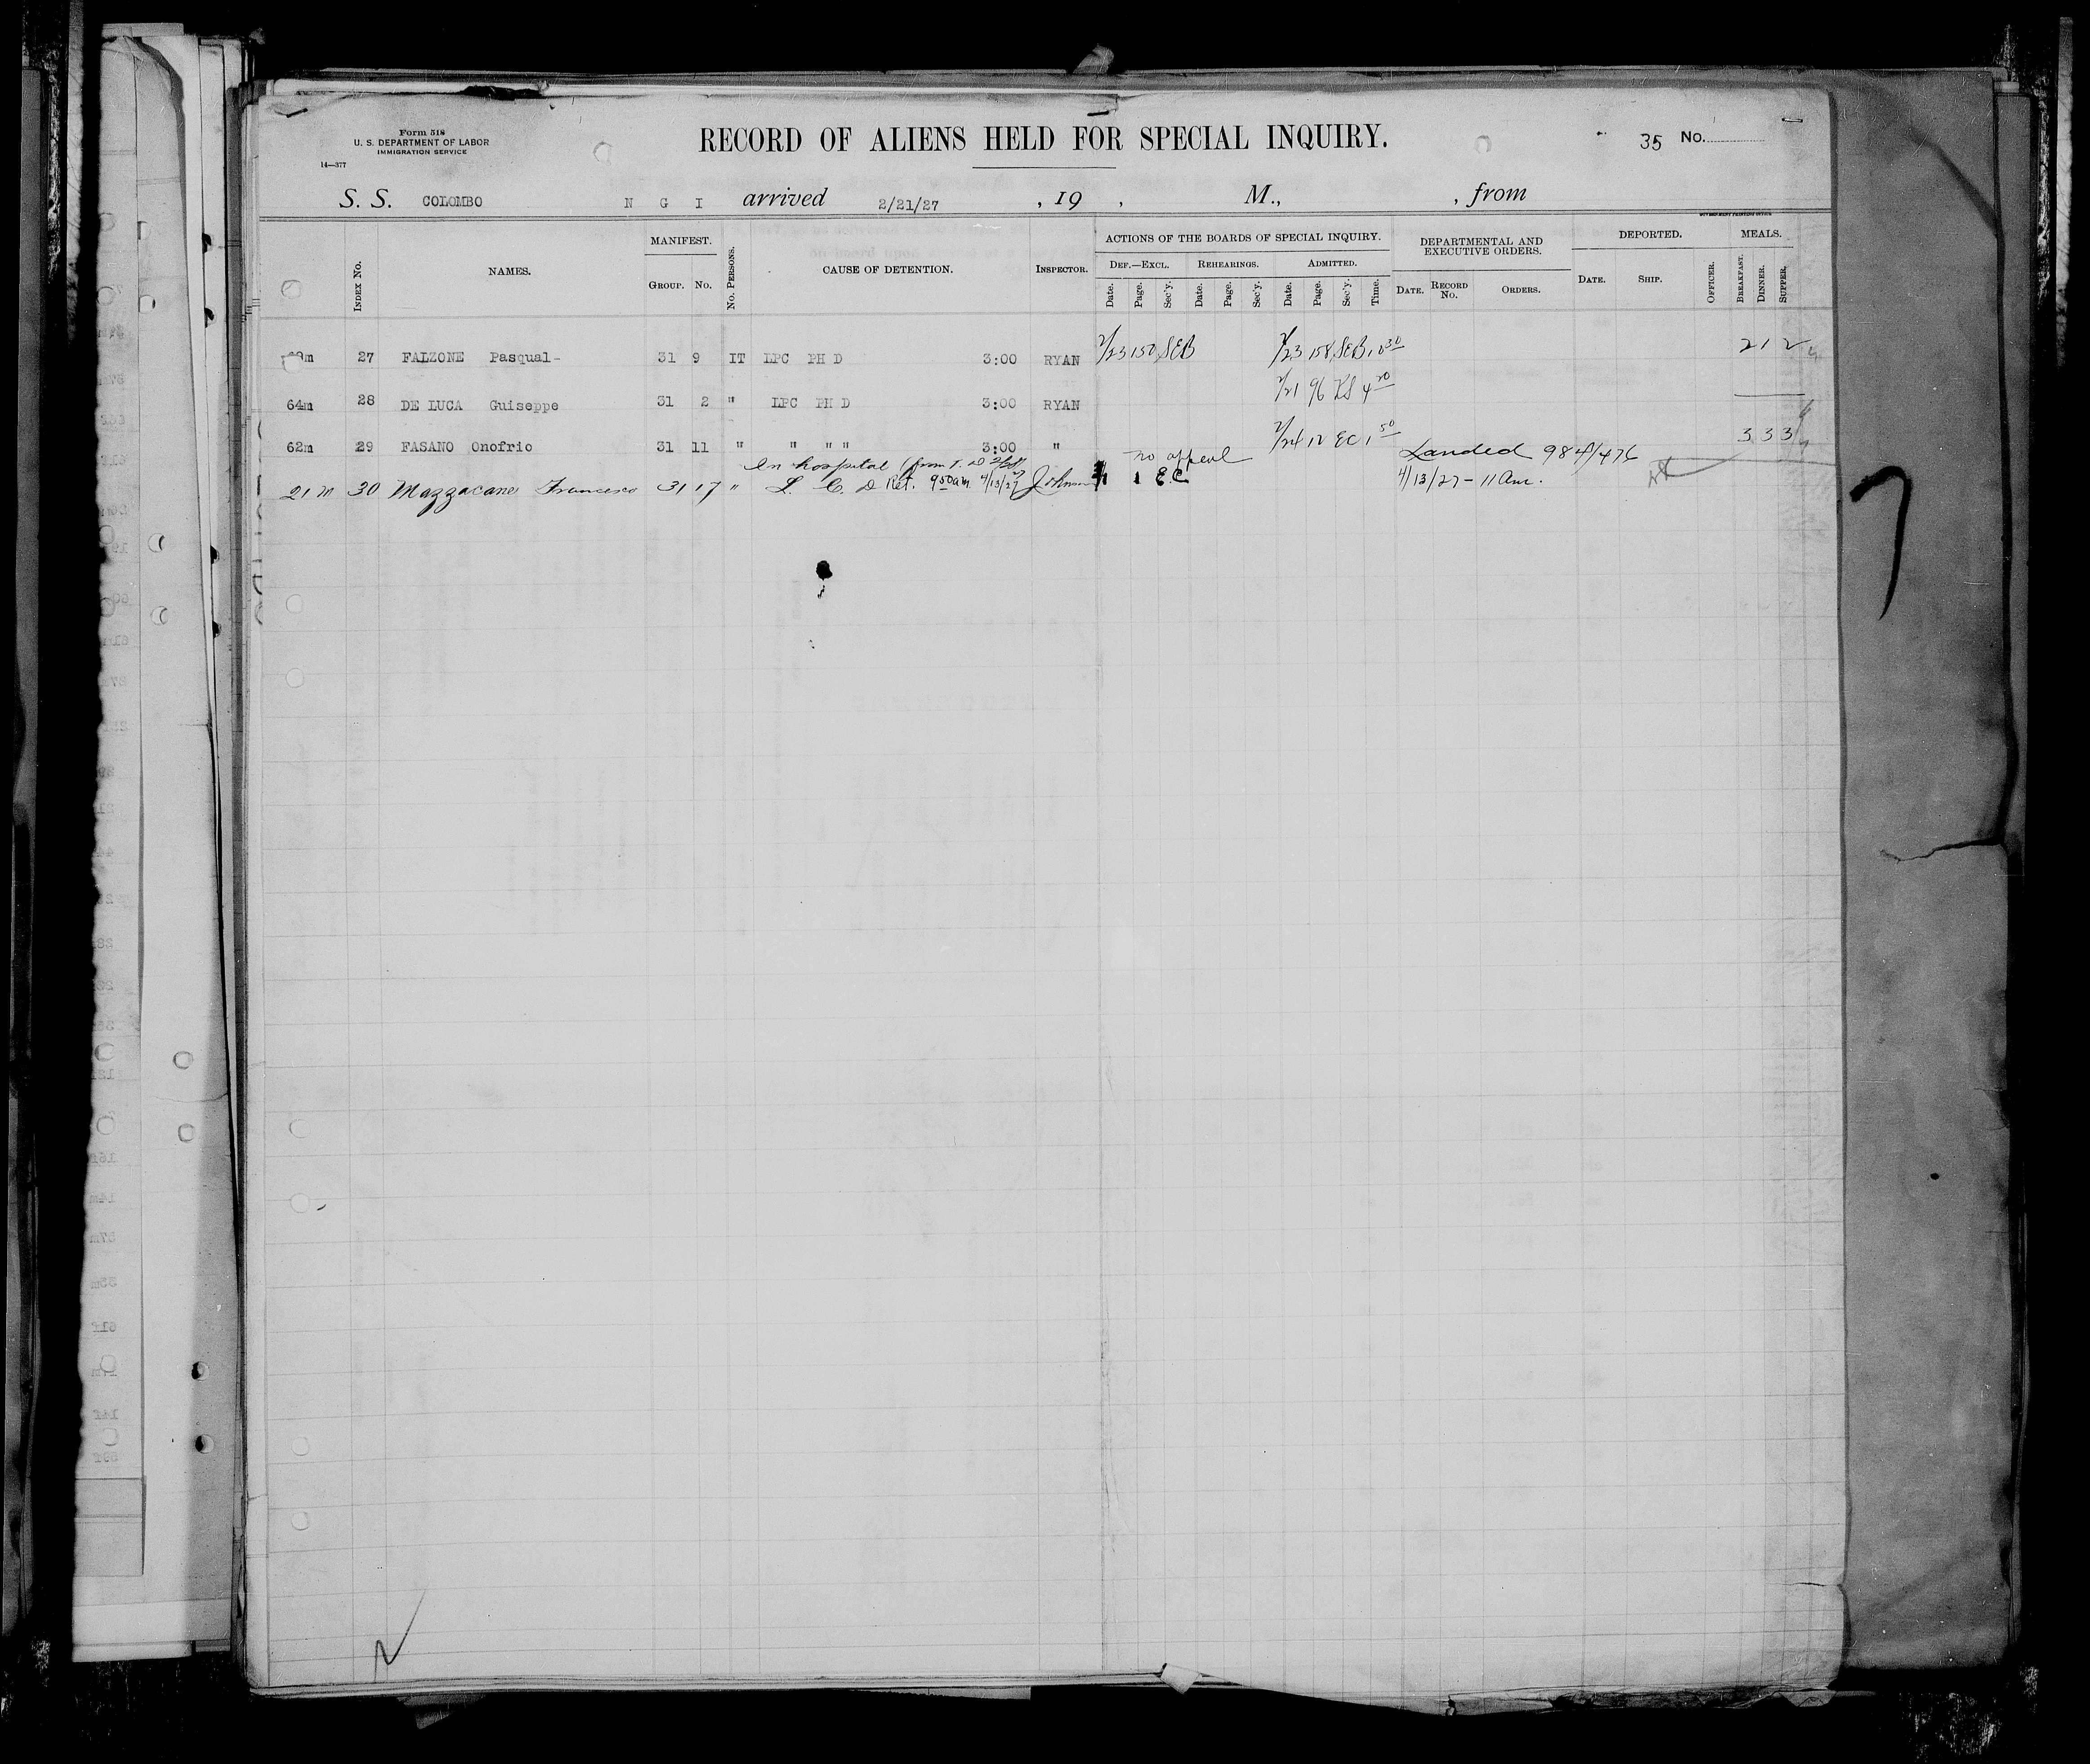 Form 518
U. S. DEPARTMENT OF LABOR
IMMIGRATION SERVICE
14—377
RECORD OF ALIENS HELD FOR SPECIAL INQUIRY.
35 No.
S. S. COLOMBO N G I arrived 2/21/27 , 19 , M., , from
GOVERNMENT PRINTING OFFICE
INDEX No. NAMES. MANIFEST. GROUP. No. No. PERSONS. CAUSE OF DETENTION. INSPECTOR. ACTIONS OF THE BOARDS OF SPECIAL INQUIRY. DEPARTMENTAL AND EXECUTIVE ORDERS. DEPORTED. MEALS.
DEF.—EXCL. REHEARINGS. ADMITTED.
Date. Page. Sec'y. Date. Page. Sec'y. Date. Page. Sec'y. Time. DATE. RECORD No. ORDERS. DATE. SHIP. OFFICER. BREAKFAST. DINNER. SUPPER.
27 FALZONE Pasqual- 31 9 IT LPC PH D 3:00 RYAN 2/23 150 SEB 2/23 158 SEB 10 30 2 1 2
64m 28 DE LUCA Guiseppe 31 2 " LPC PH D 3:00 RYAN 2/21 96 KS 4 20
62m 29 FASANO Onofrio 31 11 " " " " 3:00 " 2/24 12 EC 1 50 3 3 3
In hospital (from no appeal Landed 984/476
21 m 30 Mazzacane Francesco 31 17 " L. C. D Ret. 9 50 am. 4/13/27 Johnson 1 E.C. 4/13/27 - 11 am.